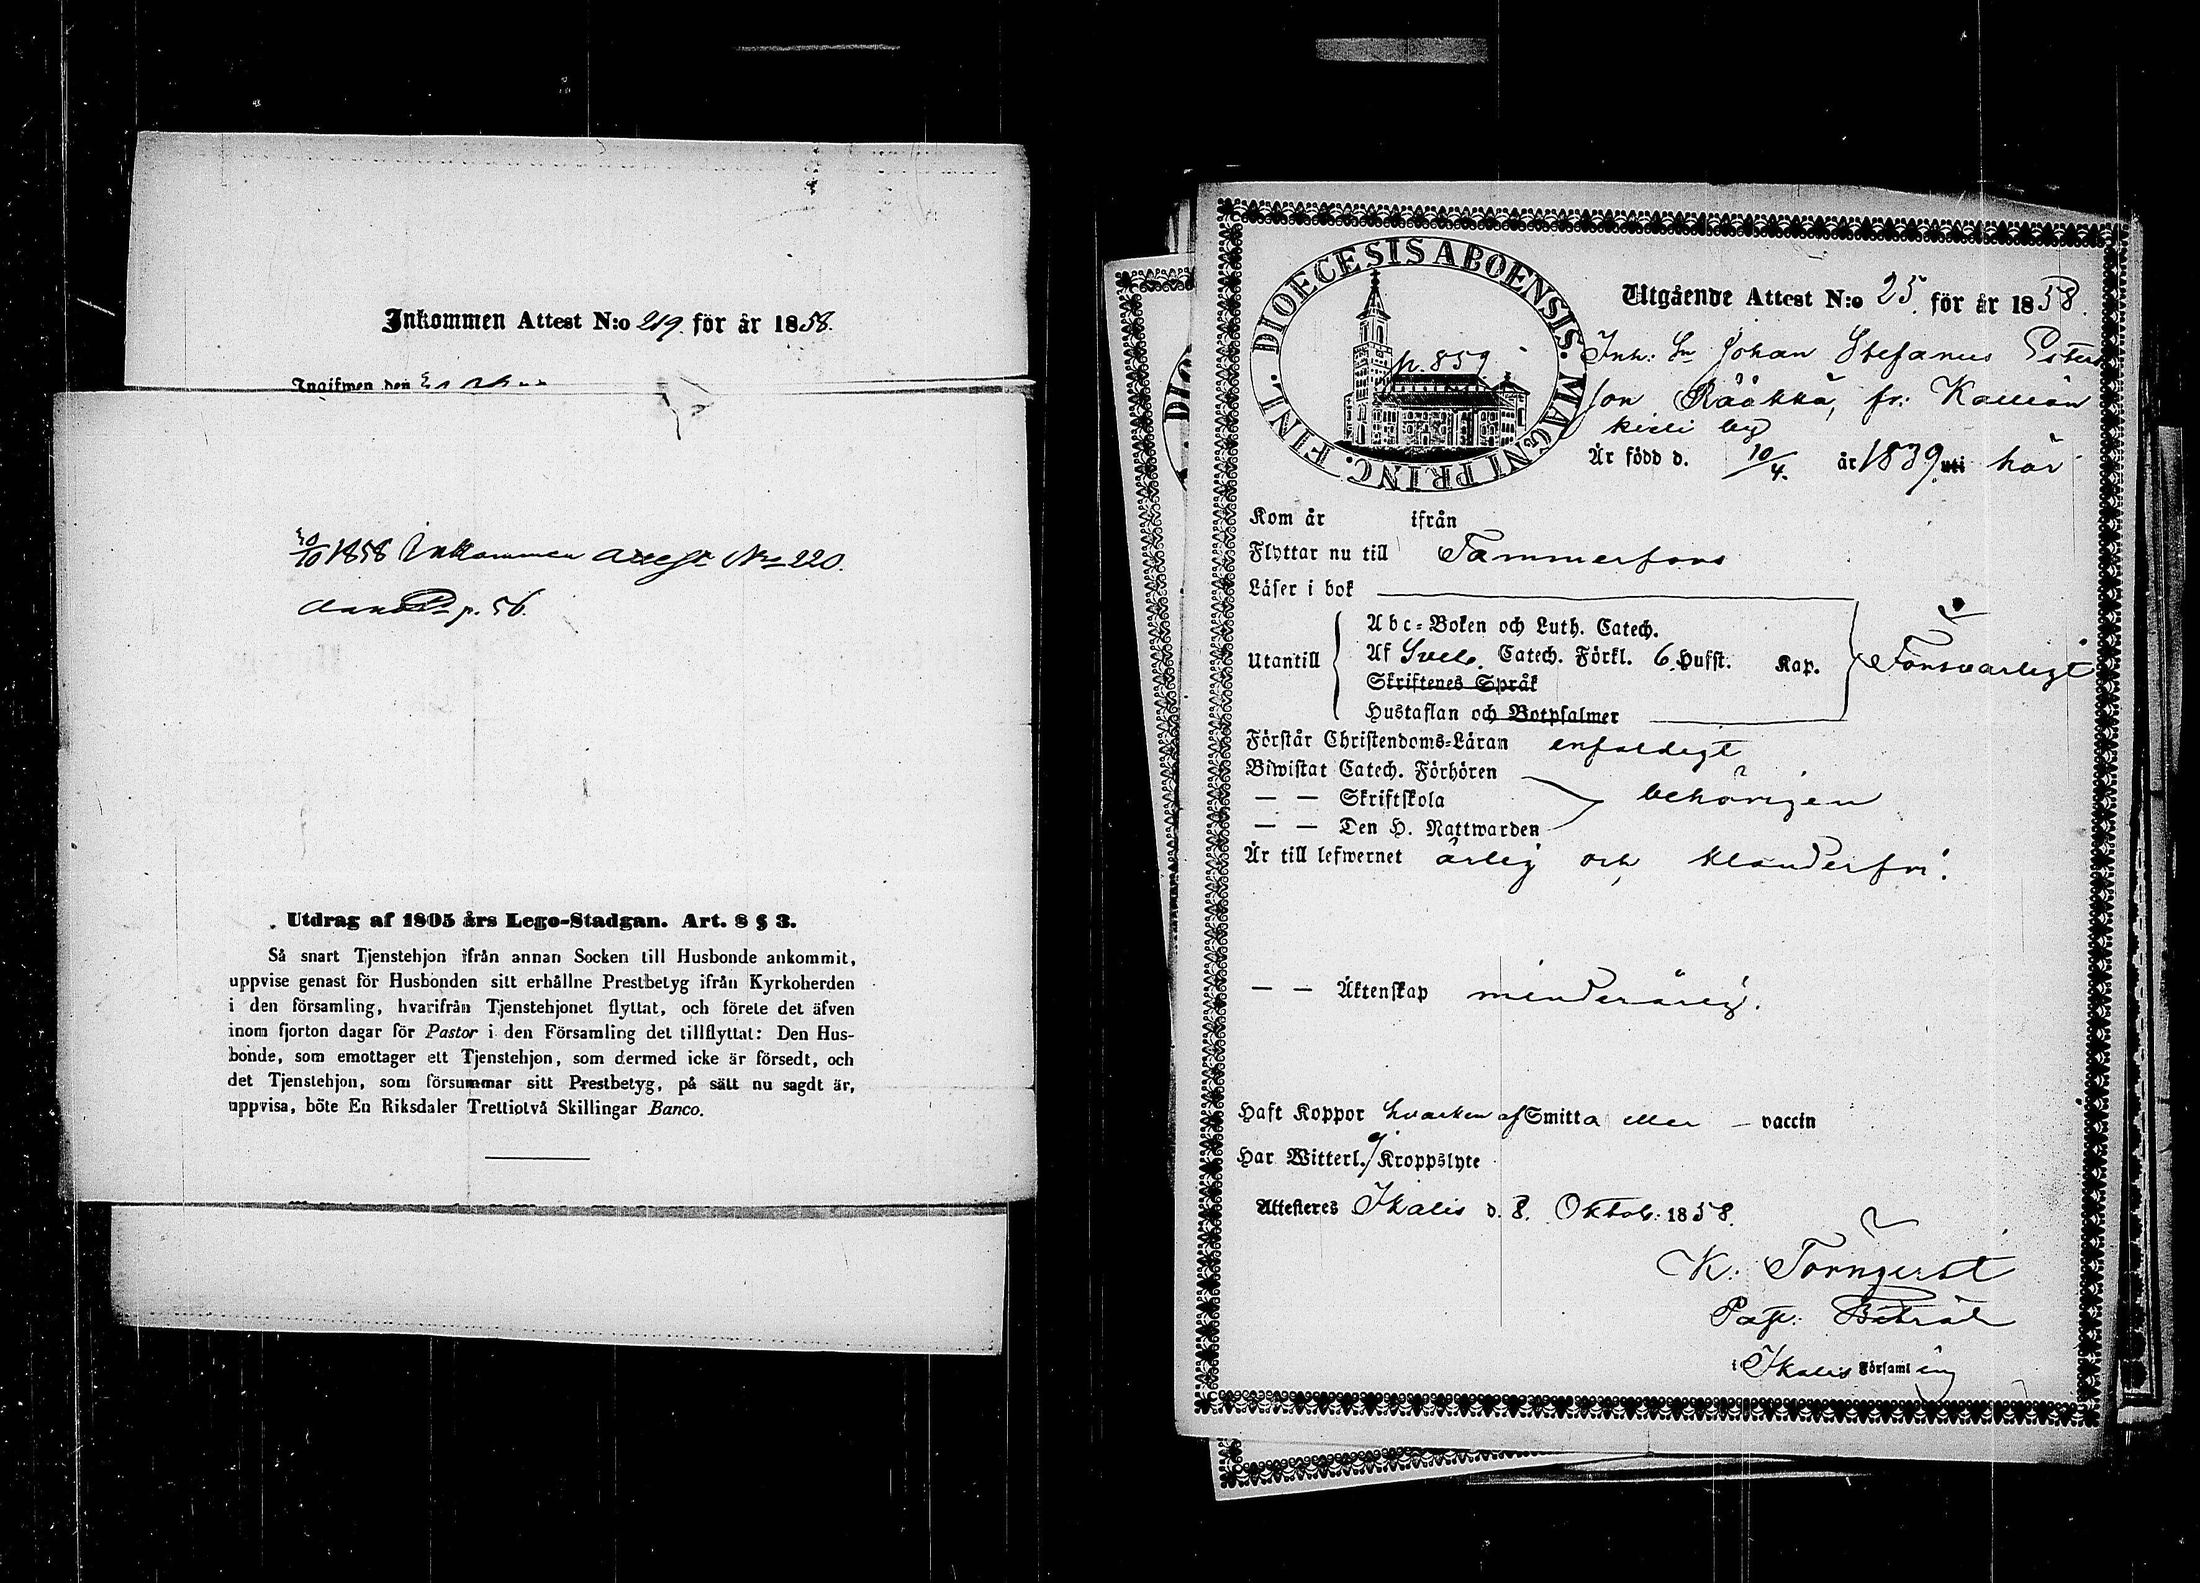 Inkommen Attest N:o 219. för år 1858.
Ingifwen den
30/10 1858 Inkommen attest No 220.
p. 56.
Utdrag af 1805 års Lego-Stadgan. Art. 8 § 3.
Så snart Tjenstehjon ifrån annan Socken till Husbonde ankommit,
uppvise genast för Husbonden sitt erhållne Prestbetyg ifrån Kyrkoherden
i den församling, hvarifrån Tjenstehjonet flyttat, och förete det äfven
inom fjorton dagar för Pastor i den Församling det tillflyttat: Den Hus-
bonde, som emottager ett Tjenstehjon, som dermed icke är försedt, och
det Tjenstehjon, som försummar sitt Prestbetyg, på sätt nu sagdt är,
uppvisa, böte En Riksdaler Trettiotvå Skillingar Banco.
DIOECESIS ABOENSIS. MAGNI PRINC. FINL.
p. 859
Utgående Attest N:o 25. för år 1858.
Inh: Sn Johan Stefanus
son Rääkkä, fr:
by
Är född d. 10/4. år 1839. uti här
Kom år ifrån
Flyttar nu till Tammerfors
Läser i bok
Utantill
Abc-Boken och Luth. Catech.
Af Sveb. Catech. Förkl. 6 Hufst. Kap.
Skriftenes Språk
Hustaflan och Botpsalmer
Försvarligt
Förstår Christendoms-Läran enfaldigt
Biwistat Catech. Förhören
— — Skriftskola behörigen
— — Den H. Nattwarden
Är till lefwernet ärlig och klanderfri.
— — Äktenskap minderårig.
Haft Koppor hvarken af Smitta eller — vaccin
Har Witterl. Kroppslyte
Attesteres Ikalis d. 8. Oktob. 1858.
K. Törnqvist
Past. Biträde
i Ikalis Församling